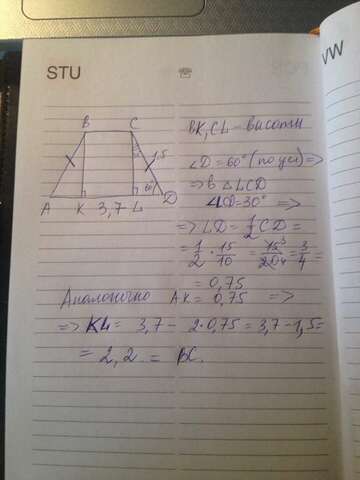 STU
VW
B C
1,5
60°
A K 3,7 L D
BK, CL - высоты
∠D = 60° (по усл) =>
=> в △LCD
∠LCD = 30° =>
=> LD = 1/2 CD =
= 1/2 · 15/10 = 15/20 = 3/4 =
= 0,75
Аналогично AK = 0,75 =>
=> KL = 3,7 - 2·0,75 = 3,7 - 1,5 =
= 2,2 = BC.